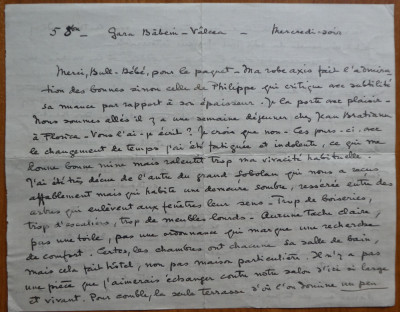 5 8bre – Gara Băbeni-Vâlcea – Mercredi-soir
Merci, Bull-Bébé, pour le paquet – Ma robe axis fait l'admira-
tion des bonnes sinon celle de Philippe qui critique avec subtilité
sa nuance par rapport à son épaisseur. Je la porte avec plaisir –
Nous sommes allés il y a une semaine déjeuner chez Jean Bratianu
à Florica – Vous l'ai-je écrit? Je crois que non – Ces jours-ci, avec
le changement de temps j'ai été fatiguée et indolente, ce qui me
donne bonne mine mais ralentit trop ma vivacité habituelle.
J'ai été très déçue de l'antre du grand qui nous a reçus
affablement mais qui habite une demeure sombre, resserrée entre des
arbres qui enlèvent aux fenêtres leur sens. Trop de boiseries,
trop d'escaliers, trop de meubles lourds – Aucune tache claire,
pas une toile, pas une ordonnance qui marque une recherche
de confort. Certes, les chambres ont chacune sa salle de bain,
mais cela fait hôtel, non pas maison particulière. Il n'y a pas
une pièce que j'aimerais échanger contre notre salon d'ici si large
et vivant. Pour comble, la seule terrasse d'où l'on domine un peu